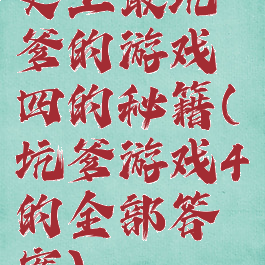 史上最坑
爹的游戏
四的秘籍(
坑爹游戏4
的全部答
案)